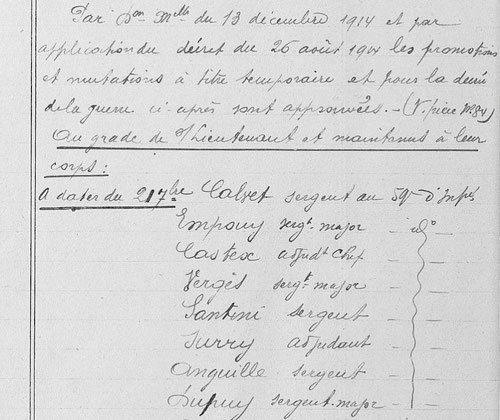 Par Don Mlle du 13 décembre 1914 et par
application du décret du 26 août 1914 les promotions
et mutations à titre temporaire et pour la durée
de la guerre ci-après sont approuvées. - (V. pièce No 84)
Au grade de S/Lieutenant et maintenus à leur
corps :
A dater du 21 7bre Calvet sergent au 59e d'Infie
Empouy sergt-major - do
Castex adjudt Chef -
Vergès sergt-major -
Santini sergent -
Jurry adjudant -
Anguille sergent -
Dupuy sergent-major -